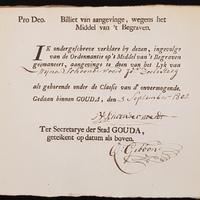 Pro Deo. Billiet van aangevinge, wegens het
Middel van 't Begraven.
IK ondergeschreve verklare by dezen, ingevolge
van de Ordonnantie op 't Middel van 't Begraven
geëmaneert, aangevinge te doen van het Lyk van
als gehorende onder de Classis van d' onvermogende.
Gedaan binnen GOUDA, den 3 September 180
Ter Secretarye der Stad GOUDA,
geteikent op datum als boven.